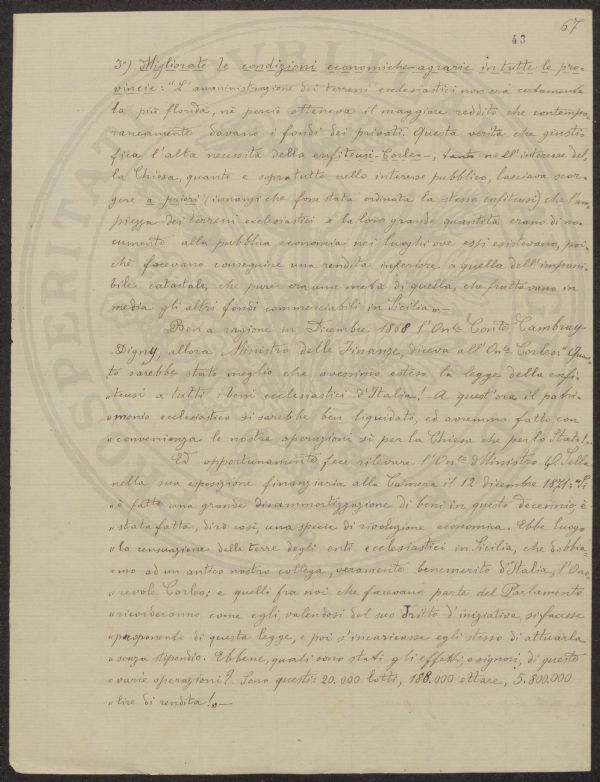 67
43
3º) Migliorate le condizioni economiche-agrarie in tutte le pro-
vincie: "L'amministrazione dei terreni ecclesiastici non era certamente
la più florida, nè perciò otteneva il maggiore reddito che contempo-
raneamente davano i fondi dei privati. Questa verità che giusti-
fica l'alta necessità della enfiteusi-Corleo-, tanto nell'interesse del-
la Chiesa, quanto e sopratutto nello interesse pubblico, lasciava scor-
gere a priori (innanzi che fosse stata ordinata la stessa enfiteusi) che l'am-
piezza dei terreni ecclesiastici e la loro grande quantità erano di no-
cumento alla pubblica economia nei luoghi ove essi esistevano, poi-
chè facevano conseguire una rendita inferiore a quella dell'imponi-
bile catastale, che pure era una metà di quella, che fruttavano in
media gli altri fondi commerciabili in Sicilia„-
Ben a ragione in Dicembre 1868 l'On.le Conte Cambray-
Digny, allora Ministro delle Finanze, diceva all'On.le Corleo: "Quan-
to sarebbe stato meglio che avessimo esteso la legge della enfi-
"teusi a tutti i beni ecclesiastici d'Italia! A quest'ora il patri-
"monio ecclesiastico si sarebbe ben liquidato, ed avremmo fatto con
"convenienza le nostre operazioni sì per la Chiesa che per lo Stato!„
Ed opportunamente fece rilevare l'On.le Ministro Q. Sella
nella sua esposizione finanziaria alla Camera il 12 dicembre 1871: "Si
"è fatta una grande disammortizzazione di beni in questo decennio; è
"stata fatta, dirò così, una specie di rivoluzione economica. Ebbe luogo
"la censuazione delle terre degli enti ecclesiastici in Sicilia, che dobbia-
"mo ad un antico nostro collega, veramente benemerito d'Italia, l'Ono-
"revole Corleo; e quelli fra noi che facevano parte del Parlamento
"ricorderanno come egli, valendosi del suo dritto d'iniziativa, si facesse
"proponente di questa legge, e poi s'incaricasse egli stesso di attuarla
"senza stipendio. Ebbene, quali sono stati gli effetti, o signori, di queste
"varie operazioni? Sono questi: 20.000 lotti, 188.000 ettare, 5.800.000
"lire di rendita!„-